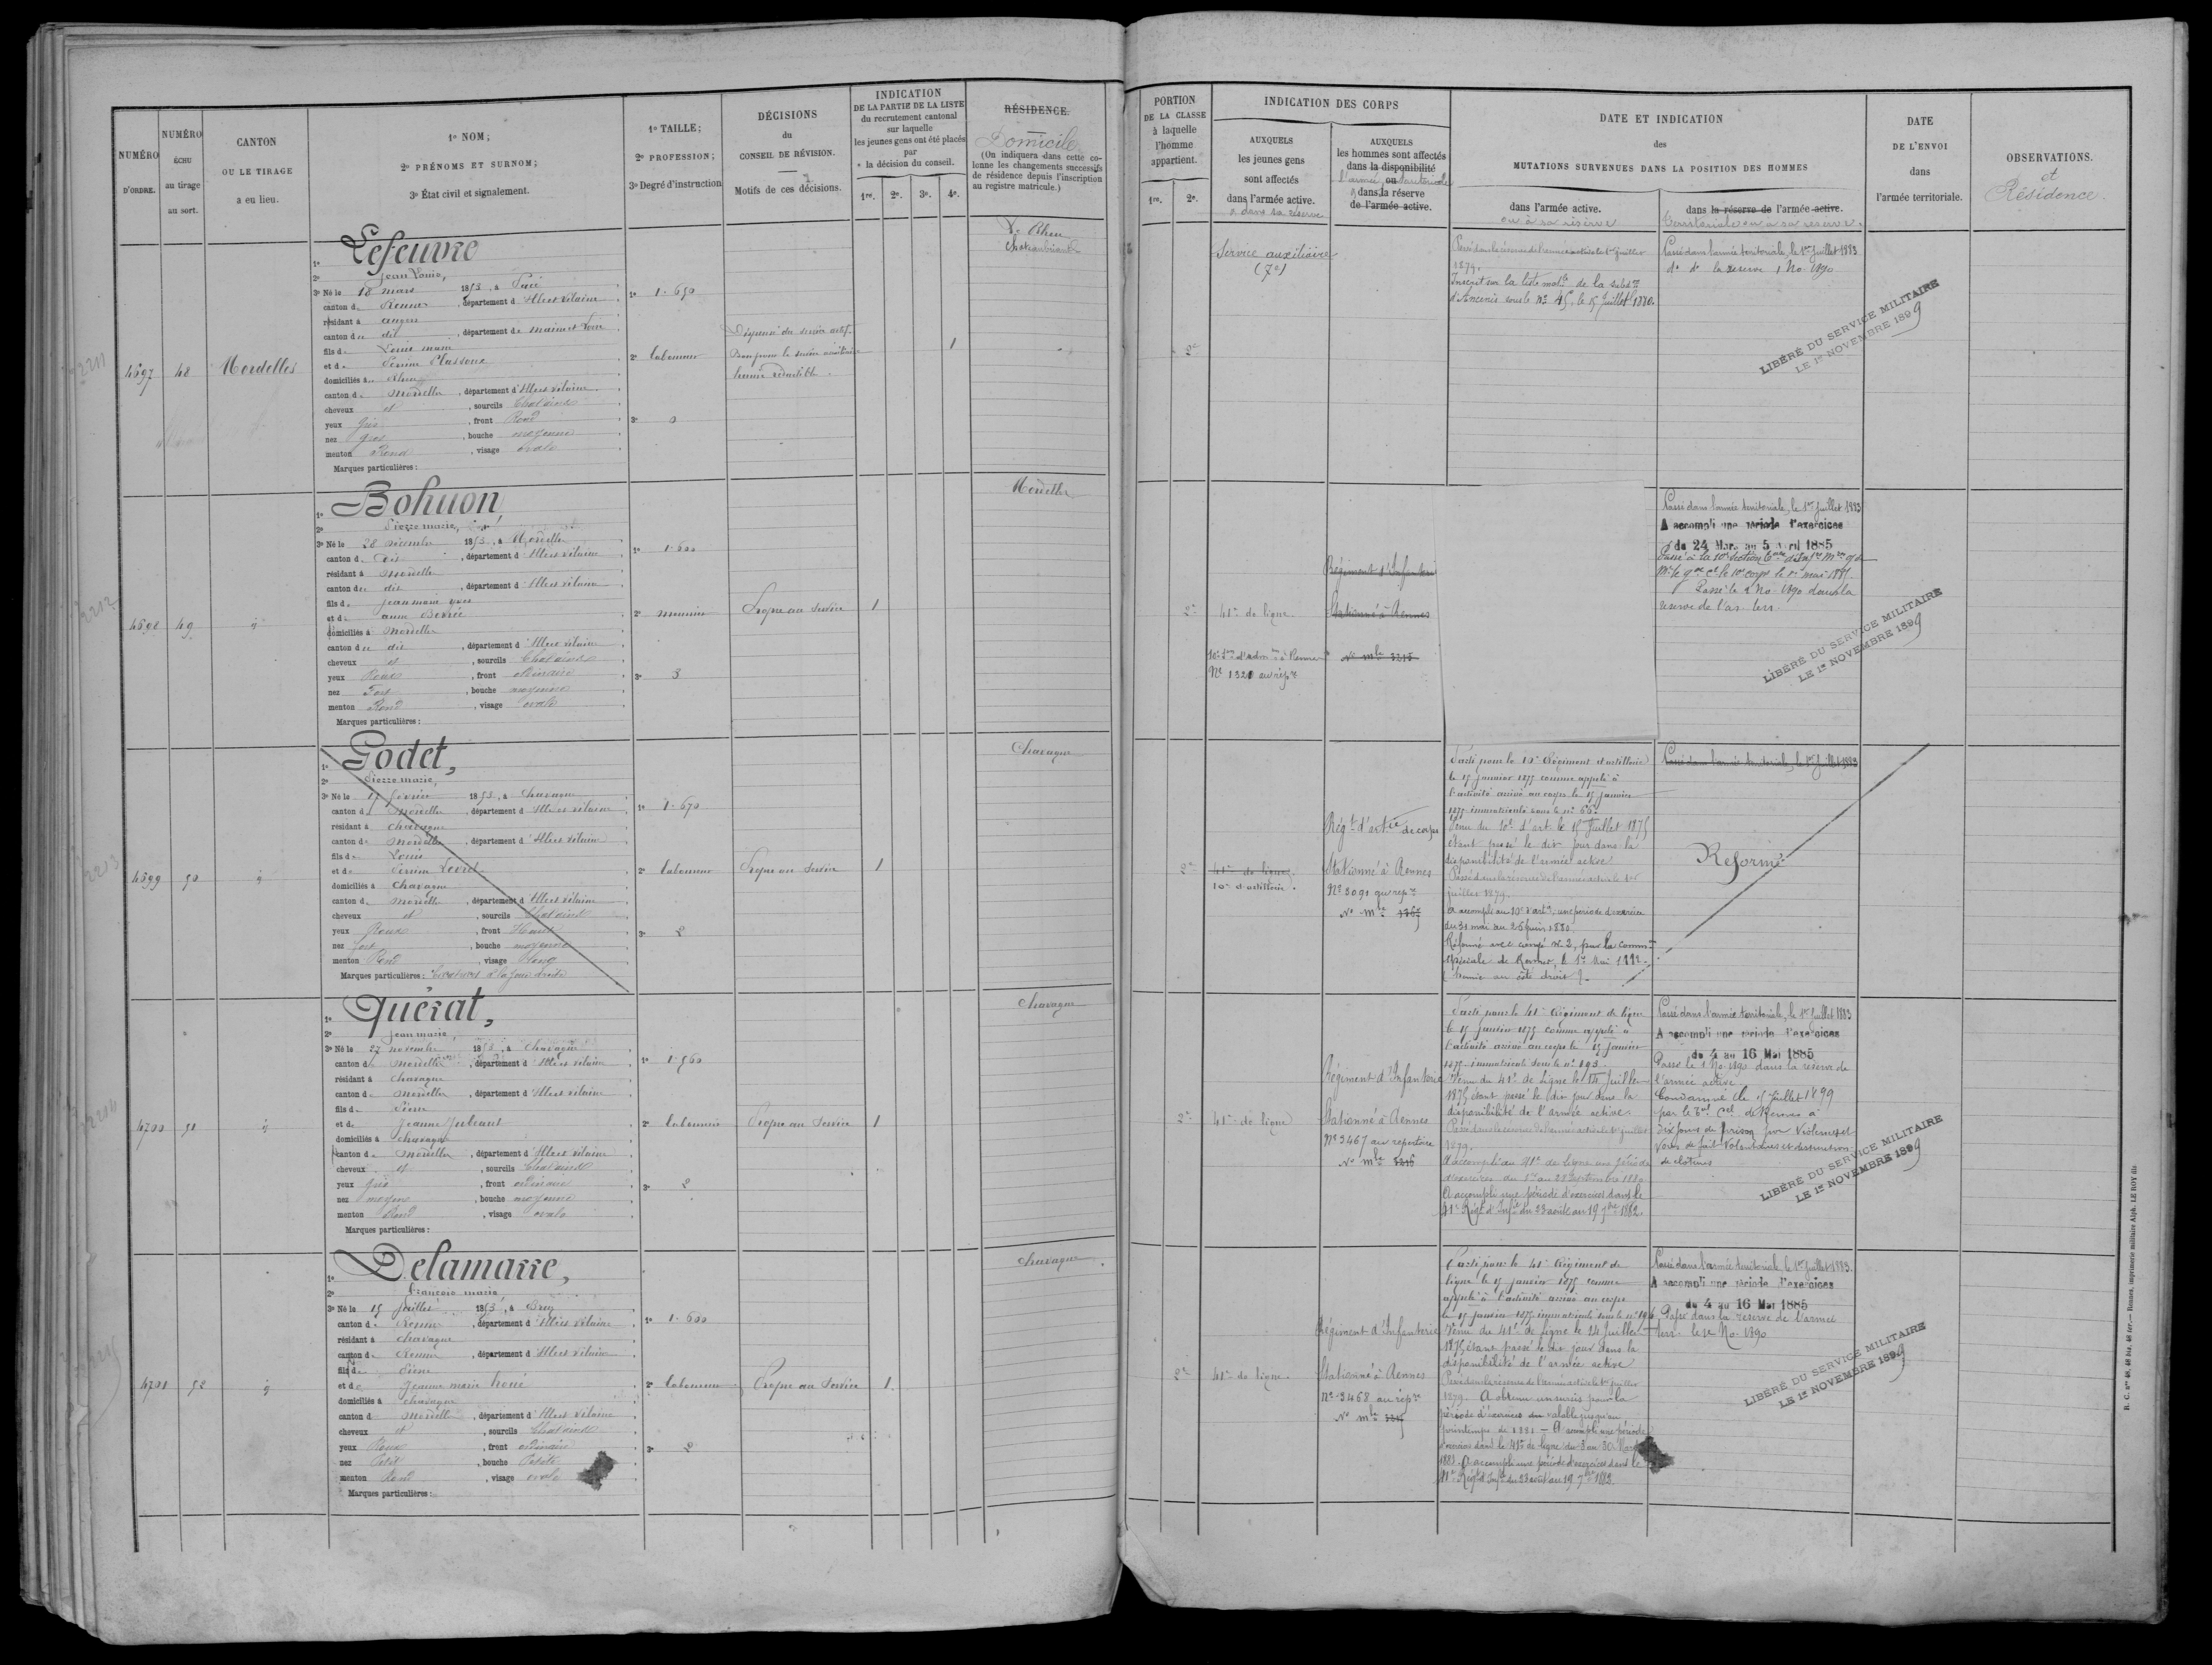 NUMÉRO
D'ORDRE.
NUMÉRO
ÉCHU
au tirage
au sort.
CANTON
OU LE TIRAGE
a eu lieu.
1º NOM;
2º PRÉNOMS ET SURNOM;
3º État civil et signalement.
1º TAILLE;
2º PROFESSION;
3º Degré d'instruction
DÉCISIONS
du
CONSEIL DE RÉVISION.
Motifs de ces décisions.
INDICATION
DE LA PARTIE DE LA LISTE
du recrutement cantonal
sur laquelle
les jeunes gens ont été placés
par
la décision du conseil.
1re. 2e. 3e. 4e.
RÉSIDENCE.
Domicile
(On indiquera dans cette co-
lonne les changements successifs
de résidence depuis l'inscription
au registre matricule.)
PORTION
DE LA CLASSE
à laquelle
l'homme
appartient.
1re. 2e.
INDICATION DES CORPS
AUXQUELS
les jeunes gens
sont affectés
dans l'armée active.
AUXQUELS
les hommes sont affectés
dans la disponibilité
l'armée ou territoriale
dans la réserve
de l'armée active.
DATE ET INDICATION
des
MUTATIONS SURVENUES DANS LA POSITION DES HOMMES
dans l'armée active.
ou à sa réserve
dans la réserve de l'armée active.
territoriale ou à sa réserve.
DATE
DE L'ENVOI
dans
l'armée territoriale.
OBSERVATIONS.
et
Résidence.
4697
48
Mordelles
1º Lefeuvre
2º Jean Louis,
3º Né le 18 mars 1853, à Pacé
canton de Rennes, département d'Ille et Vilaine
résidant à angers
canton du dit, département de Maine et Loire
fils de Louis marie
et de Perrine Plassoux
domiciliés à Rheu
canton de Mordelles, département d'Ille et Vilaine
cheveux et, sourcils Chatains
yeux gris, front Rond
nez gros, bouche moyenne
menton Rond, visage ovale
Marques particulières:
1º 1.650
2º laboureur
3º 0
Dispensé du service actif
Bon pour le service auxiliaire
hernie réductible
1
Le Rheu
Chateaubriand
2e
Service auxiliaire
(7e)
Passé dans la réserve de l'armée active le 1er juillet
1879.
Inscrit sur la liste mat.le de la subd.on
d'Ancenis sous le nº 45, le 15 Juillet 1880.
Passé dans l'armée territoriale, le 1er Juillet 1883
dº dº la reserve 1 No. 1890
LIBÉRÉ DU SERVICE MILITAIRE
LE 1er NOVEMBRE 1899
4698
49
1º Bohuon,
2º Pierre marie,
3º Né le 28 décembre 1853, à Mordelles
canton de dit, département d'Ille et Vilaine
résidant à Mordelles
canton du dit, département d'Ille et Vilaine
fils de Jean marie yves
et de anne
domiciliés à Mordelles
canton du dit, département d'Ille et Vilaine
cheveux et, sourcils Chatains
yeux Roux, front ordinaire
nez Fort, bouche moyenne
menton Rond, visage ovale
Marques particulières:
1º 1.600
2º meunier
3º 3
Propre au Service
1
Mordelles
2e
41e de ligne
10e S.on d'adm.on à Rennes
Nº 1320 au rép.re
Régiment d'Infanterie
Stationné à Rennes
Nº m.le 3215
Passé dans l'armée territoriale, le 1er Juillet 1883
A accompli une période d'exercices
du 24 Mars au 5 Avril 1885
Passé le 1 No. 1890 dans la
réserve de l'ar. terr.
LIBÉRÉ DU SERVICE MILITAIRE
LE 1er NOVEMBRE 1899
4699
50
1º Godet,
2º Pierre marie,
3º Né le 15 février 1853, à Chavagne
canton de Mordelles, département d'Ille et Vilaine
résidant à Chavagne
canton de Mordelles, département d'Ille et Vilaine
fils de Louis
et de Perrine Louvel
domiciliés à Chavagne
canton de Mordelles, département d'Ille et Vilaine
cheveux et, sourcils Chatains
yeux Roux, front Haut
nez fort, bouche moyenne
menton Rond, visage long
Marques particulières: à la joue droite
1º 1.670
2º laboureur
3º 2
Propre au Service
1
Chavagne
2e
41e de ligne
10e d'artillerie.
Rég.t d'art.ie de corps
Stationné à Rennes
Nº 3091 au rép.re
Nº m.le 1365
Parti pour le 10e Régiment d'artillerie
le 15 janvier 1875 comme appelé à
l'activité arrivé au corps le 15 janvier
1875 immatriculé sous le nº
Venu du 10e d'art. le 15 Juillet 1875
étant passé le dit jour dans la
disponibilité de l'armée active
Passé dans la réserve de l'armée active le 1er
juillet 1879.
A accompli au 10e d'art.ie une période d'exercices
du 31 mai au 25 juin 1880
Réformé avec congé nº 2, par la comm.on
spéciale de Rennes, le 1er Mai 1882.
(hernie au côté droit).
Passé dans l'armée territoriale, le 1er Juillet 1883
Réformé
4700
51
1º Quérat,
2º Jean marie
3º Né le 27 novembre 1853, à Chavagne
canton de Mordelles, département d'Ille et Vilaine
résidant à Chavagne
canton de Mordelles, département d'Ille et Vilaine
fils de Pierre
et de Jeanne Jubeaux
domiciliés à Chavagne
canton de Mordelles, département d'Ille et Vilaine
cheveux et, sourcils Chatains
yeux gris, front ordinaire
nez moyen, bouche moyenne
menton Rond, visage ovale
Marques particulières:
1º 1.560
2º laboureur
3º 2
Propre au Service
1
Chavagne
2e
41e de ligne
Régiment d'Infanterie
Stationné à Rennes
Nº 3467 au répertoire
Nº m.le 3216
Parti pour le 41e Régiment de ligne
le 15 janvier 1875 comme appelé à
l'activité arrivé au corps le 15 janvier
1875 immatriculé sous le nº 193.
Venu du 41e de ligne le 14 Juillet
1875 étant passé le dit jour dans la
disponibilité de l'armée active.
Passé dans la réserve de l'armée active le 1er juillet
1879.
A accompli au 41e de ligne une période
d'exercices du 1er au 28 Septembre 1880
A accompli une période d'exercices dans le
41e Rég.t d'Inf.ie du 23 août au 19 7bre 1882.
Passé dans l'armée territoriale, le 1er Juillet 1883
A accompli une période d'exercices
du 4 au 16 Mai 1885
Passé le 1 No. 1890 dans la réserve de
l'armée active
Condamné le 5 juillet 1899
par le T.al C.el de Rennes à
dix jours de prison pour violences et
voies de fait volontaires et destruction
de clôtures
LIBÉRÉ DU SERVICE MILITAIRE
LE 1er NOVEMBRE 1899
4701
52
1º Delamarre,
2º François marie
3º Né le 15 juillet 1853, à Bruz
canton de Rennes, département d'Ille et Vilaine
résidant à Chavagne
canton de Rennes, département d'Ille et Vilaine
fils de Pierre
et de Jeanne marie Houé
domiciliés à Chavagne
canton de Mordelles, département d'Ille et Vilaine
cheveux et, sourcils Chatains
yeux Roux, front ordinaire
nez Petit, bouche Petite
menton Rond, visage ovale
Marques particulières:
1º 1.600
2º laboureur
3º 2
Propre au Service
1
Chavagne
2e
41e de ligne
Régiment d'Infanterie
Stationné à Rennes
Nº 3468 au rép.re
Nº m.le
Parti pour le 41e Régiment de
ligne le 15 janvier 1875 comme
appelé à l'activité arrivé au corps
le 15 janvier 1875 immatriculé sous le nº 196
Venu du 41e de ligne le 14 Juillet
1875 étant passé le dit jour dans la
disponibilité de l'armée active
Passé dans la réserve de l'armée active le 1er juillet
1879. A obtenu un sursis pour la
période d'exercices valable jusqu'au
printemps de 1881 — A accompli une période
d'exercices dans le 41e de ligne du 3 au 30 Mars
1881. A accompli une période d'exercices dans le
41e Rég.t d'Inf.ie du 23 août au 19 7bre 1882.
Passé dans l'armée territoriale, le 1er Juillet 1883.
A accompli une période d'exercices
du 4 au 16 Mai 1885
Passé dans la réserve de l'armée
terr. le 1er No. 1890
LIBÉRÉ DU SERVICE MILITAIRE
LE 1er NOVEMBRE 1899
R. C. nos 48, 48 bis, 48 ter. — Rennes, imprimerie militaire Alph. LE ROY fils